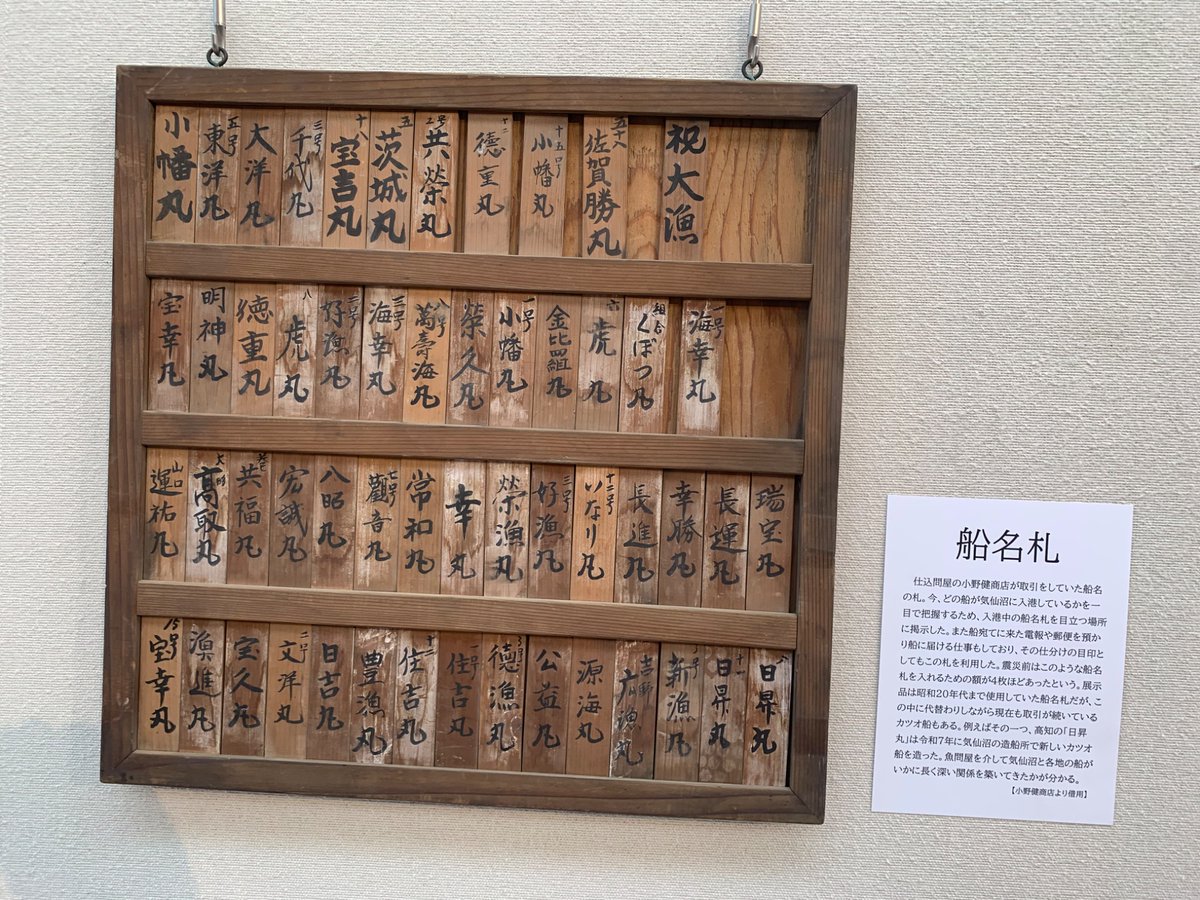 祝大漁
五十八 佐賀勝丸
十五号 小幡丸
十二 徳重丸
2号 共榮丸
五 茨城丸
十八 宝吉丸
三号 千代丸
大洋丸
五号 東洋丸
小幡丸
一号 海幸丸
組合 くぼつ丸
六 虎丸
金比羅丸
一号 小幡丸
榮久丸
八号 萬壽海丸
三号 海幸丸
二号 好漁丸
八 虎丸
徳重丸
明神丸
宝幸丸
瑞宝丸
長運丸
幸勝丸
長進丸
十二号 いなり丸
三号 好漁丸
榮漁丸
幸丸
常和丸
七号 觀音丸
八昭丸
宏誠丸
共福丸
高取丸
山口 運祐丸
日昇丸
十一 日昇丸
新漁丸
吉野 广漁丸
源海丸
公益丸
徳漁丸
一号 住吉丸
十二 住吉丸
豊漁丸
日吉丸
二号 文洋丸
宝久丸
漁進丸
15号 宝幸丸
船名札
仕込問屋の小野健商店が取引をしていた船名
の札。今、どの船が気仙沼に入港しているかを一
目で把握するため、入港中の船名札を目立つ場所
に掲示した。また船宛てに来た電報や郵便を預か
り船に届ける仕事もしており、その仕分けの目印と
してもこの札を利用した。震災前はこのような船名
札を入れるための額が4枚ほどあったという。展示
品は昭和20年代まで使用していた船名札だが、こ
の中に代替わりしながら現在も取引が続いている
カツオ船もある。例えばその一つ、高知の「日昇
丸」は令和7年に気仙沼の造船所で新しいカツオ
船を造った。魚問屋を介して気仙沼と各地の船が
いかに長く深い関係を築いてきたかが分かる。
【小野健商店より借用】